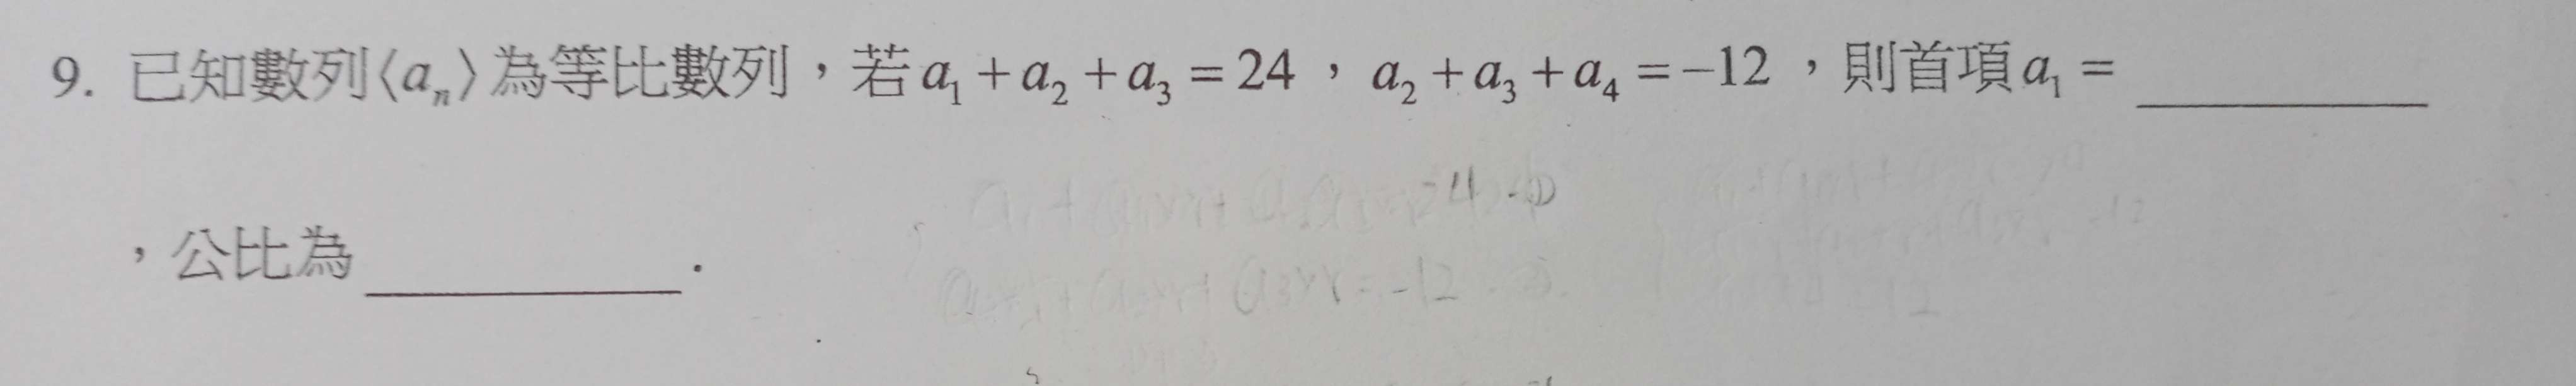 9. 已知數列⟨aₙ⟩為等比數列，若 a₁ + a₂ + a₃ = 24 ， a₂ + a₃ + a₄ = −12 ，則首項 a₁ = ________
，公比為 ________ .